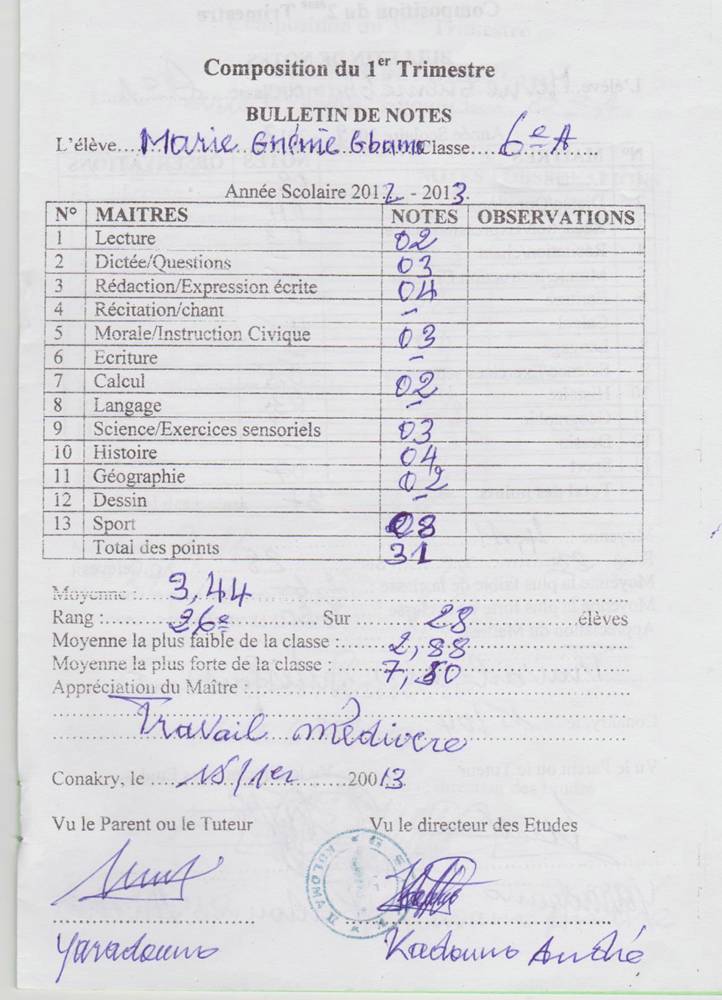 Composition du 1er Trimestre
BULLETIN DE NOTES
L'élève....Marie Gnénié Gbamo Classe....6e A
Année Scolaire 2012 - 2013.
N° MAITRES NOTES OBSERVATIONS
1 Lecture 02
2 Dictée/Questions 03
3 Rédaction/Expression écrite 04
4 Récitation/chant -
5 Morale/Instruction Civique 03
6 Ecriture -
7 Calcul 02
8 Langage -
9 Science/Exercices sensoriels 03
10 Histoire 04
11 Géographie 02
12 Dessin -
13 Sport 08
Total des points 31
Moyenne : 3,44
Rang :....26e.... Sur ....28....élèves
Moyenne la plus faible de la classe :....2,88
Moyenne la plus forte de la classe : 7,50
Appréciation du Maître :
Travail médiocre
Conakry, le ....15/1er....20013
Vu le Parent ou le Tuteur Vu le directeur des Etudes
KOLOMA
Yaradouno Kadouno André